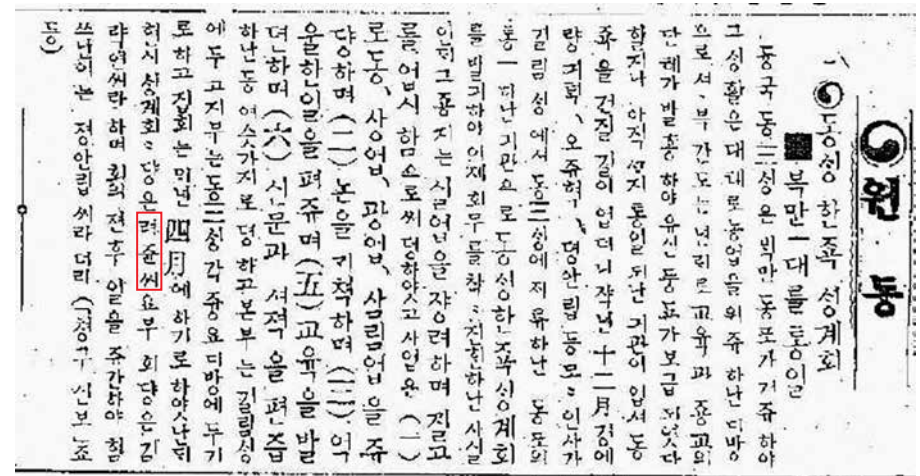 원동
동성 한죡 성계회
북만 一대를 통일
동국 동三성은 백만 동포가 거쥬 하야
그 생활은 대대로 농업을 위쥬 하난 디방
으로셔 부간도는 년리로 교육과 죵교의
단톄가 발흥 하야 유신 동포가 보급 되엿다
할지나 아직 통일 되난 긔관이 업셔 동
죡을 건질 길이 업더니 작년 十二月경에
량긔탁, 오쥬혁, 뎡안립 등 모모 인사가
길림성에셔 동三성에 져류하난 동포의
통一 되난 긔관으로 동성한죡성계회
를 발긔하야 이제 회무를 착착 진힝하난 사실
이 그 죵지는 실업을 쟝려하며 질고
를 업시 함으로써 뎡하얏고 사업은 (一)
로동, 사업, 광업, 삼림업을 쥬
쟝하며 (二) 논을 긔척하며 (三) 어
을한일을 펴쥬며 (五) 교육을 발
뎐하며 (六) 신문과 셔젹을 편즙
하난 등 여슷가지로 뎡하고 본부는 길림성
에 두고 지부는 동三성 각 쥬요 디방에 두기
로 하고 지회는 미년 四月에 하기로 하얏스나 된
현시 성계회 쟝은 려쥰씨요 부회쟝은 김
략연씨라 하며 회의 젼후 일을 쥬간하야 힘
쓰난이는 졍안립씨라더라 (쳥구신보 죠
등)